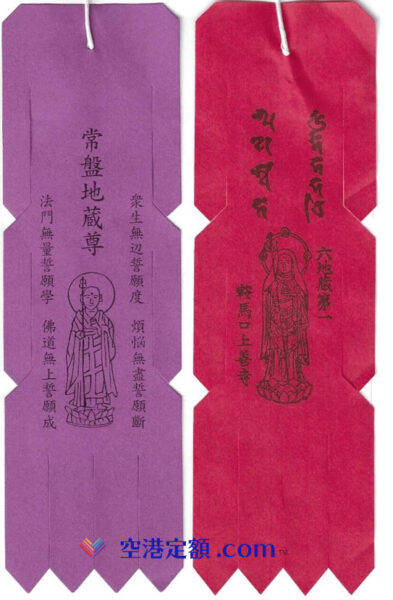 常盤地蔵尊
衆生無辺誓願度 煩悩無盡誓願斷
法門無量誓願學 佛道無上誓願成
六地蔵第一
鞍馬口上善寺
空港定額.com™